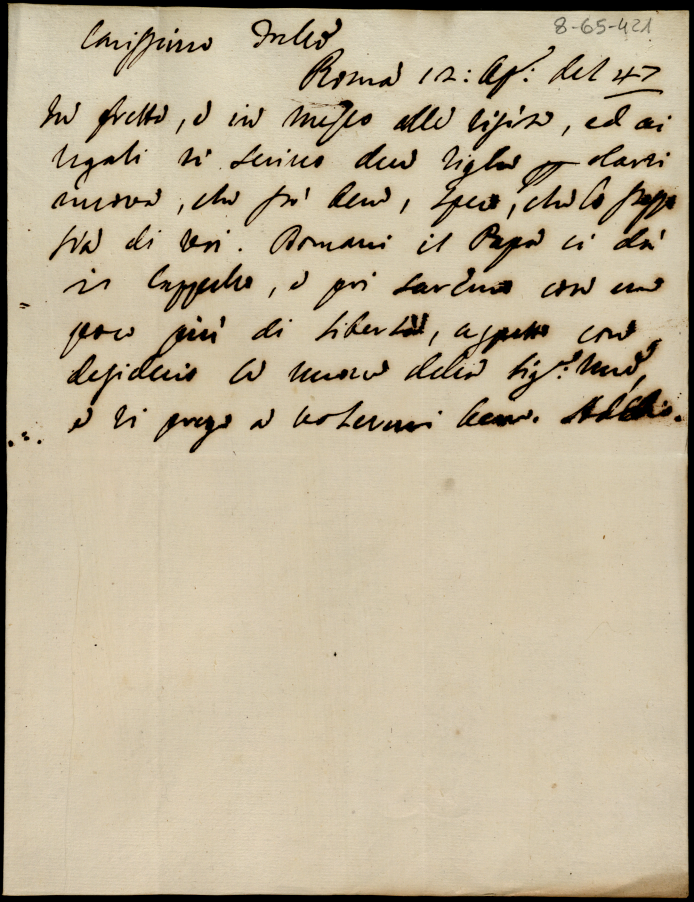 8-65-421
Carissimo
Roma 12: Ap: del 47
In fretta, e in mezzo alle visite, ed ai
regali vi scrivo due righe p darvi
nuova, che stò bene, spero, che lo stesso
sia di voi. Domani il Papa ci dà
il Cappello, e poi saremo con un
poco più di libertà, aspetto con
desiderio le nuove della Sig:
e vi prego a volermi bene. Addio.